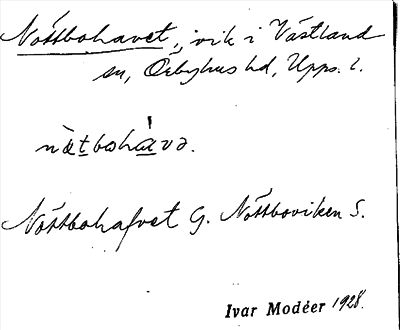 Nöttbohavet, vik i Västland
sn, Örbyhus hd, Upps. l.
nä̀tbohávə.
Nöttbohafvet G. Nöttboviken S.
Ivar Modéer 1928.